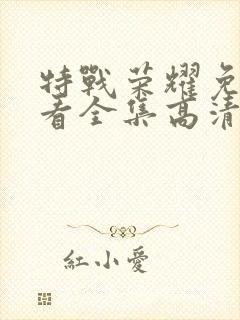 特戰荣耀免
看全集高清
紅小愛